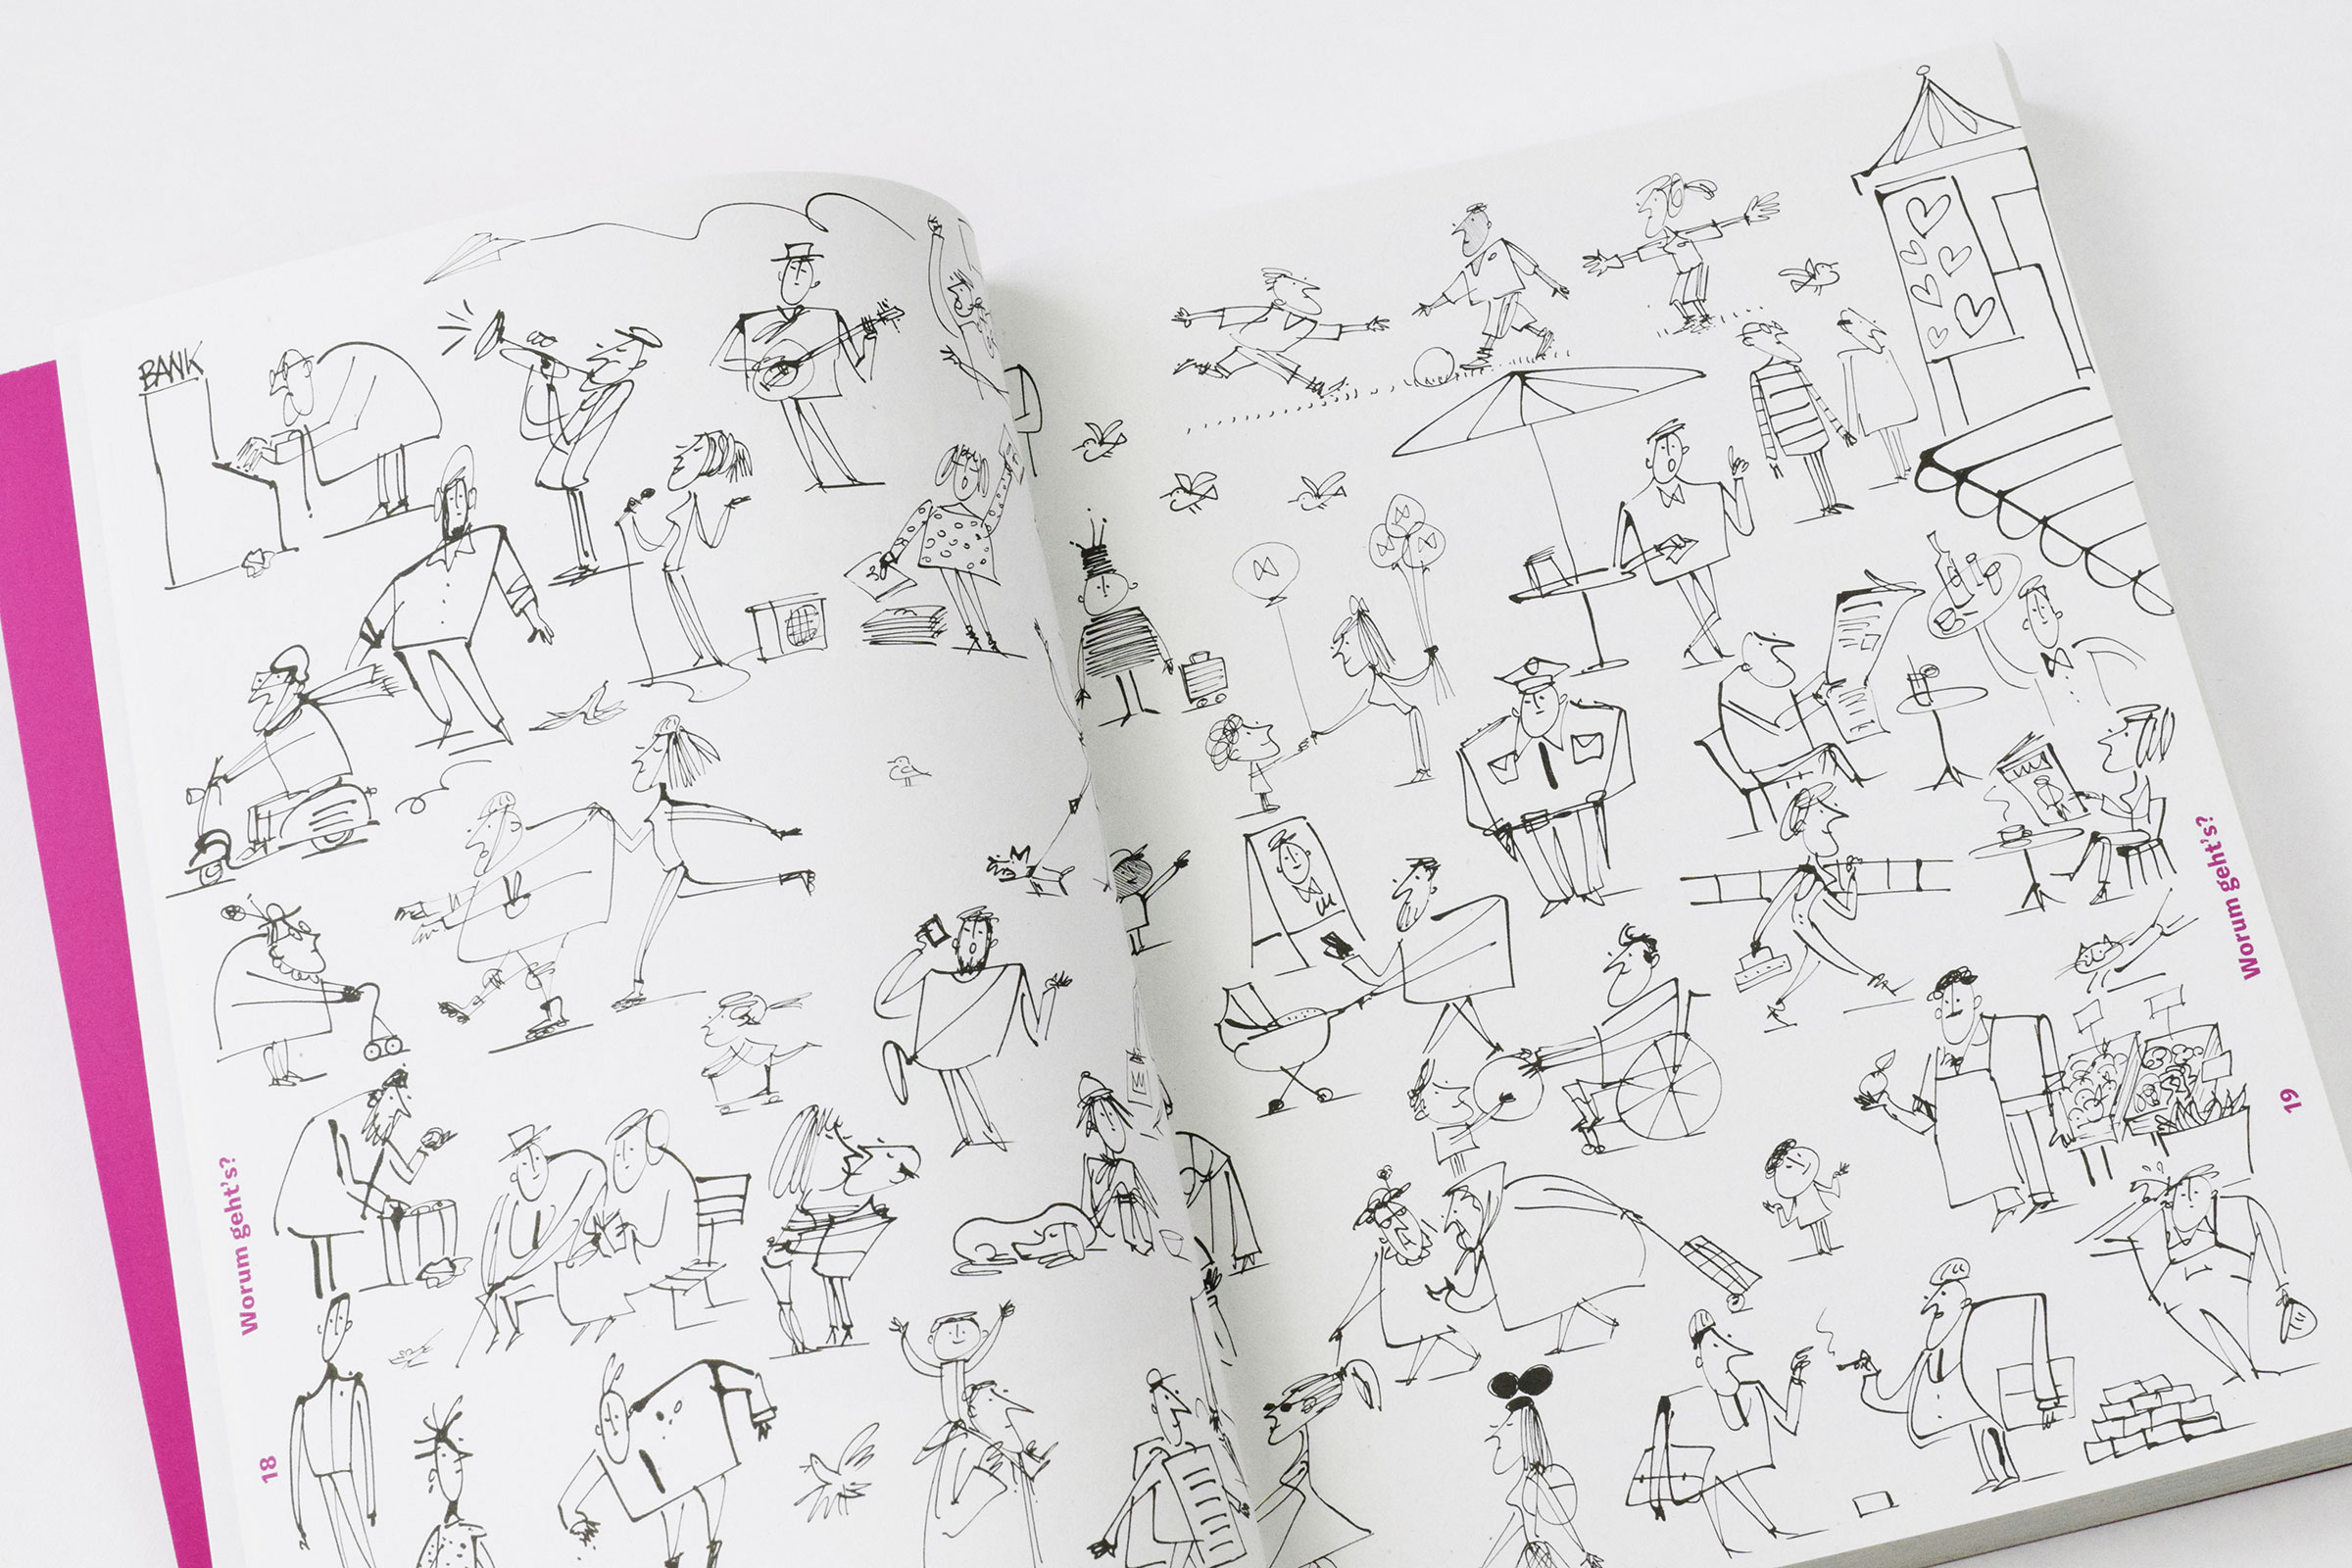 BANK
Worum geht's?
18
Worum geht's?
19